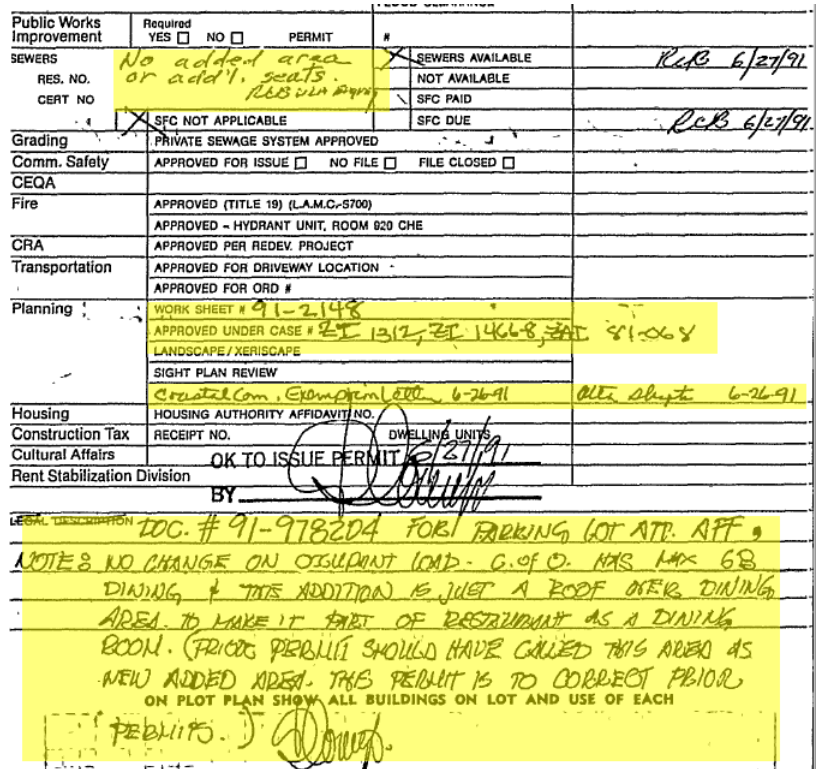 Public Works Improvement Required YES ☐ NO ☐ PERMIT #
SEWERS No added area SEWERS AVAILABLE RCB 6/27/91
RES. NO. or add'l. seats. NOT AVAILABLE
CERT NO RCB SFC PAID
SFC NOT APPLICABLE SFC DUE RCB 6/27/91
Grading PRIVATE SEWAGE SYSTEM APPROVED
Comm. Safety APPROVED FOR ISSUE ☐ NO FILE ☐ FILE CLOSED ☐
CEQA
Fire APPROVED (TITLE 19) (L.A.M.C.-5700)
APPROVED – HYDRANT UNIT, ROOM 920 CHE
CRA APPROVED PER REDEV. PROJECT
Transportation APPROVED FOR DRIVEWAY LOCATION
APPROVED FOR ORD #
Planning WORK SHEET # 91-2148
APPROVED UNDER CASE # ZI 1312, ZI 1466-8, ZAI 81-068
LANDSCAPE / XERISCAPE
SIGHT PLAN REVIEW
Coastal Com. Exemption Letter 6-26-91 6-26-91
Housing HOUSING AUTHORITY AFFIDAVIT NO.
Construction Tax RECEIPT NO. DWELLING UNITS
Cultural Affairs OK TO ISSUE PERMIT 6/27/91
Rent Stabilization Division
BY
LEGAL DESCRIPTION DOC. # 91-978204 FOR PARKING LOT ATT. AFF,
NOTE: NO CHANGE ON OCCUPANT LOAD - C. of O. HAS MAX 68
DINING & THIS ADDITION IS JUST A ROOF OVER DINING
AREA. TO MAKE IT PART OF RESTAURANT AS A DINING
ROOM. (PRIOR PERMIT SHOULD HAVE CALLED THIS AREA AS
NEW ADDED AREA. THIS PERMIT IS TO CORRECT PRIOR
ON PLOT PLAN SHOW ALL BUILDINGS ON LOT AND USE OF EACH
PERMITS. )